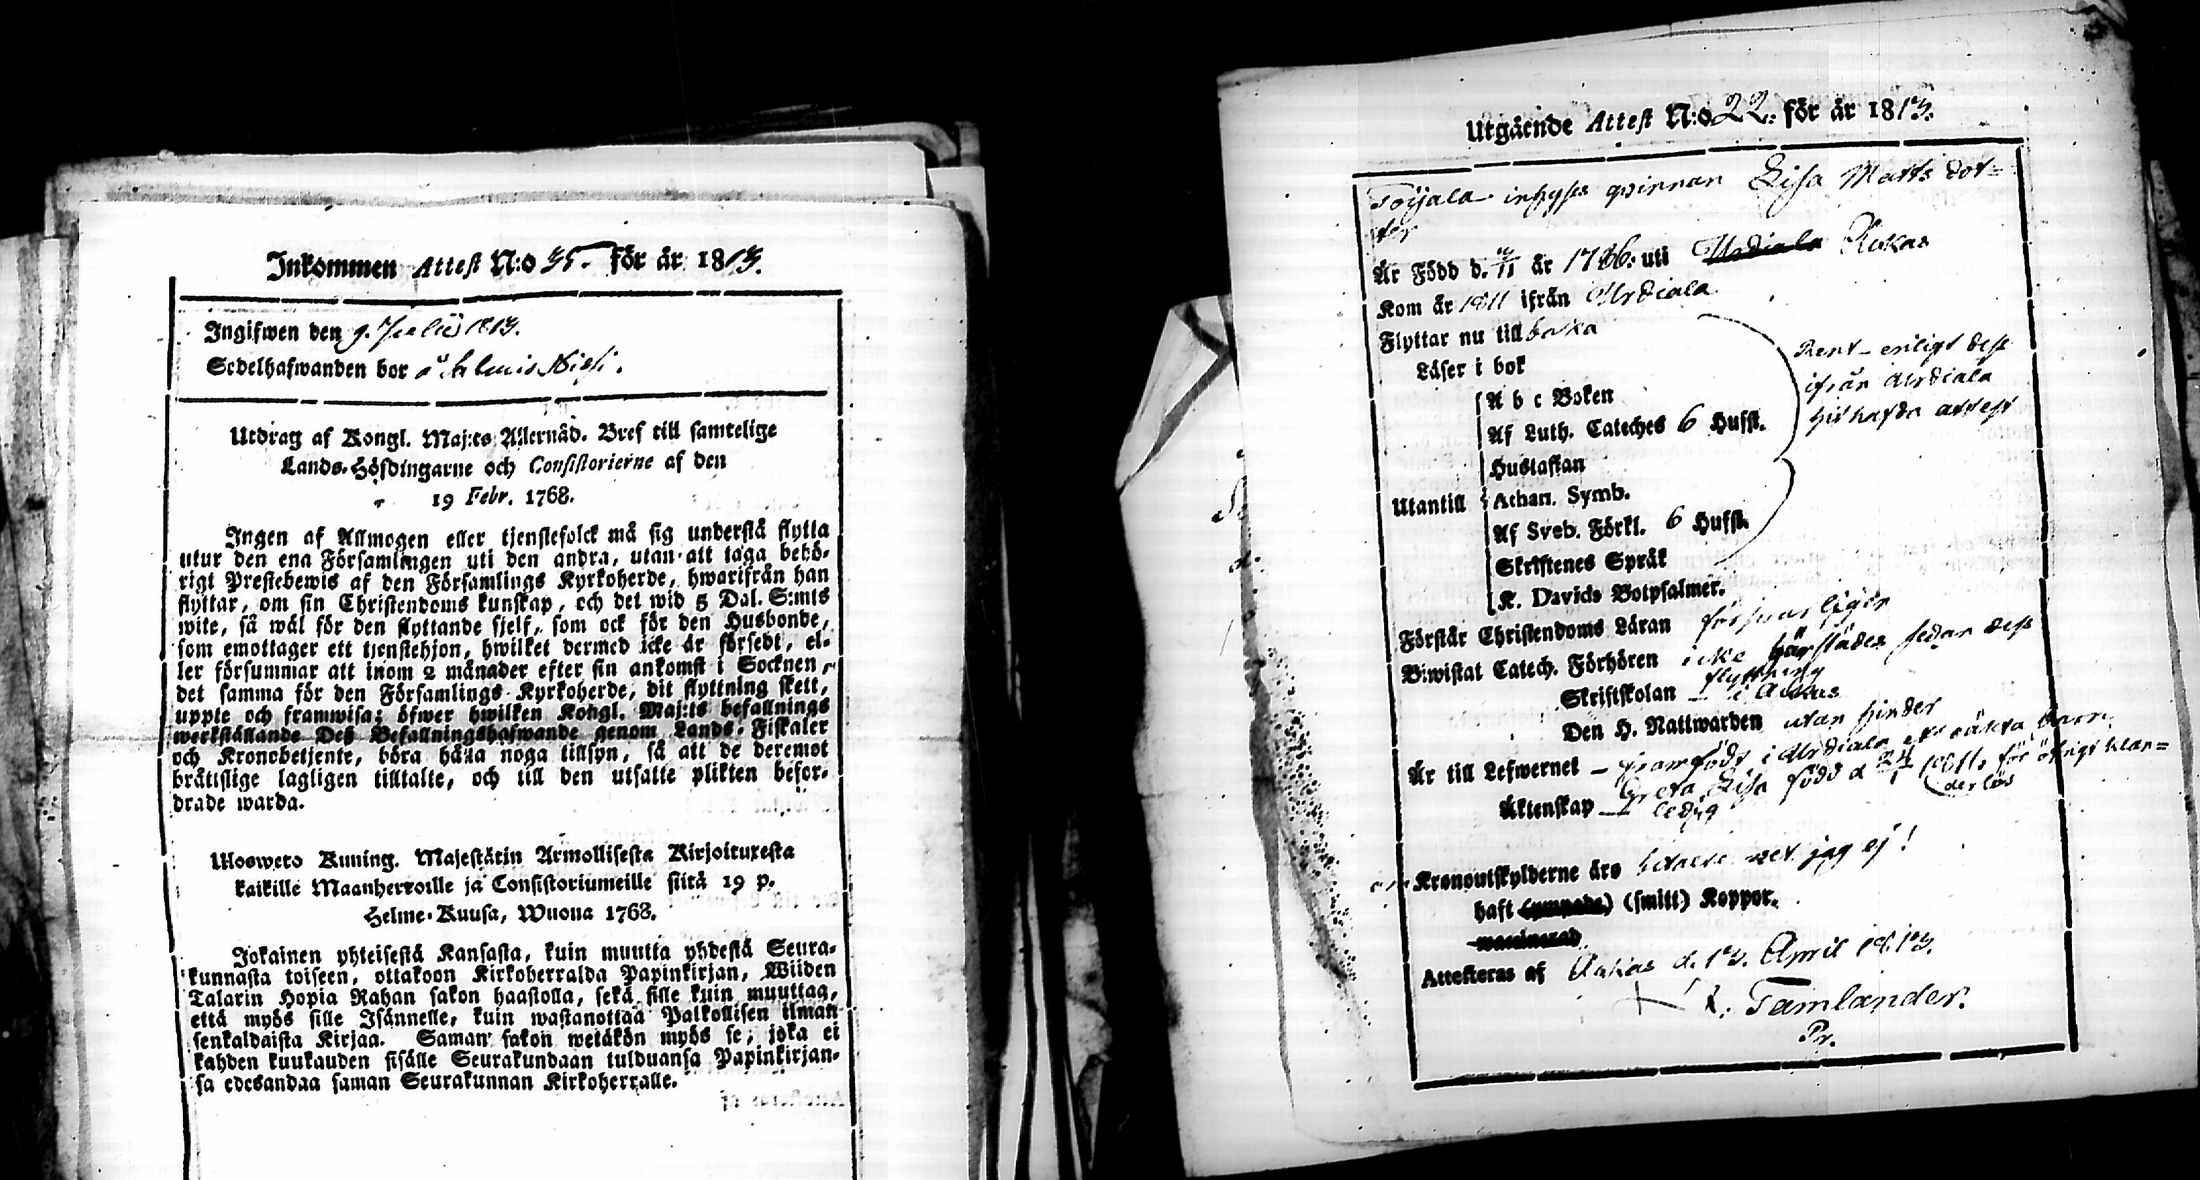 Inkommen Attest N:o 35. för år 1813.
Ingifwen den 9. Julii 1813.
Sedelhafwanden bor å
Utdrag af Kongl. Maj:ts Allernåd. Bref till samtelige
Lands-Höfdingarne och Consistorierne af den
19 Febr. 1768.
Ingen af Allmogen eller tjenstefolck må sig understå flytta
utur den ena Församlingen uti den andra, utan att taga behö-
rigt Prestebewis af den Församlings Kyrkoherde, hwarifrån han
flyttar, om sin Christendoms kunskap, och det wid 5 Dal. S:mts
wite, så wäl för den flyttande sjelf, som ock för den Husbonde,
som emottager ett tjenstehjon, hwilket dermed icke är försedt, el-
ler försummar att inom 2 månader efter sin ankomst i Socknen,
det samma för den Församlings Kyrkoherde, dit flyttning skett,
uppte och framwisa; öfwer hwilken Kongl. Maj:ts befallnings
werkställande Deß Befallningshafwande genom Lands-Fiskaler
och Kronobetjente, böra hålla noga tillsyn, så att de deremot
bråtislige lagligen tilltalte, och till den utsatte plikten befor-
drade warda.
Ulosweto Kuning. Majestätin Armollisesta Kirjoituxesta
kaikille Maanherroille ja Consistoriumeille siitä 19 p.
Helme-Kuusa, Wuona 1768.
Jokainen yhteisestä Kansasta, kuin muutta yhdestä Seura-
kunnasta toiseen, ottakoon Kirkoherralda Papinkirjan, Wiiden
Talarin Hopia Rahan sakon haastolla, sekä sille kuin muuttaa,
että myös sille Isännelle, kuin wastanottaa Palkollisen ilman
senkaldaista Kirjaa. Saman sakon wetäkön myös se, joka ei
kahden kuukauden sisälle Seurakundaan tulduansa Papinkirjan-
sa edesandaa saman Seurakunnan Kirkoherralle.
Utgående Attest N:o 22. för år 1813.
Toijala inhyses qvinnan Lisa Matts dot-
ter
Är Född d. år 1786. uti Urdiala Akas
Kom år 1811 ifrån Urdiala
Flyttar nu till baka
Läser i bok
A b c Boken
Af Luth. Cateches 6 Hufst.
Hustaflan
Utantill Athan. Symb.
Af Sveb. Förkl. 6 Hufst.
Skriftenes Språk
K. Davids Botpsalmer.
Rent enligt dess
ifrån Urdiala
hit hafda attest
Förstår Christendoms Läran försvarligen
Biwistat Catech. Förhören icke härstädes sedan dess
flyttning
Skriftskolan i Akas
Den H. Nattwarden utan hinder
Är till Lefwernet - framfödt i Urdiala ett oäkta barn,
Greta Lisa född d 24/1 1811. för öfrigt klan-
derlös
Äktenskap ledig
Kronoutskylderne äro betalte vet jag ej!
haft (smitt) Koppor.
Attesteras af Ackas d. 13. April 1813.
Tamlander.
Pr.